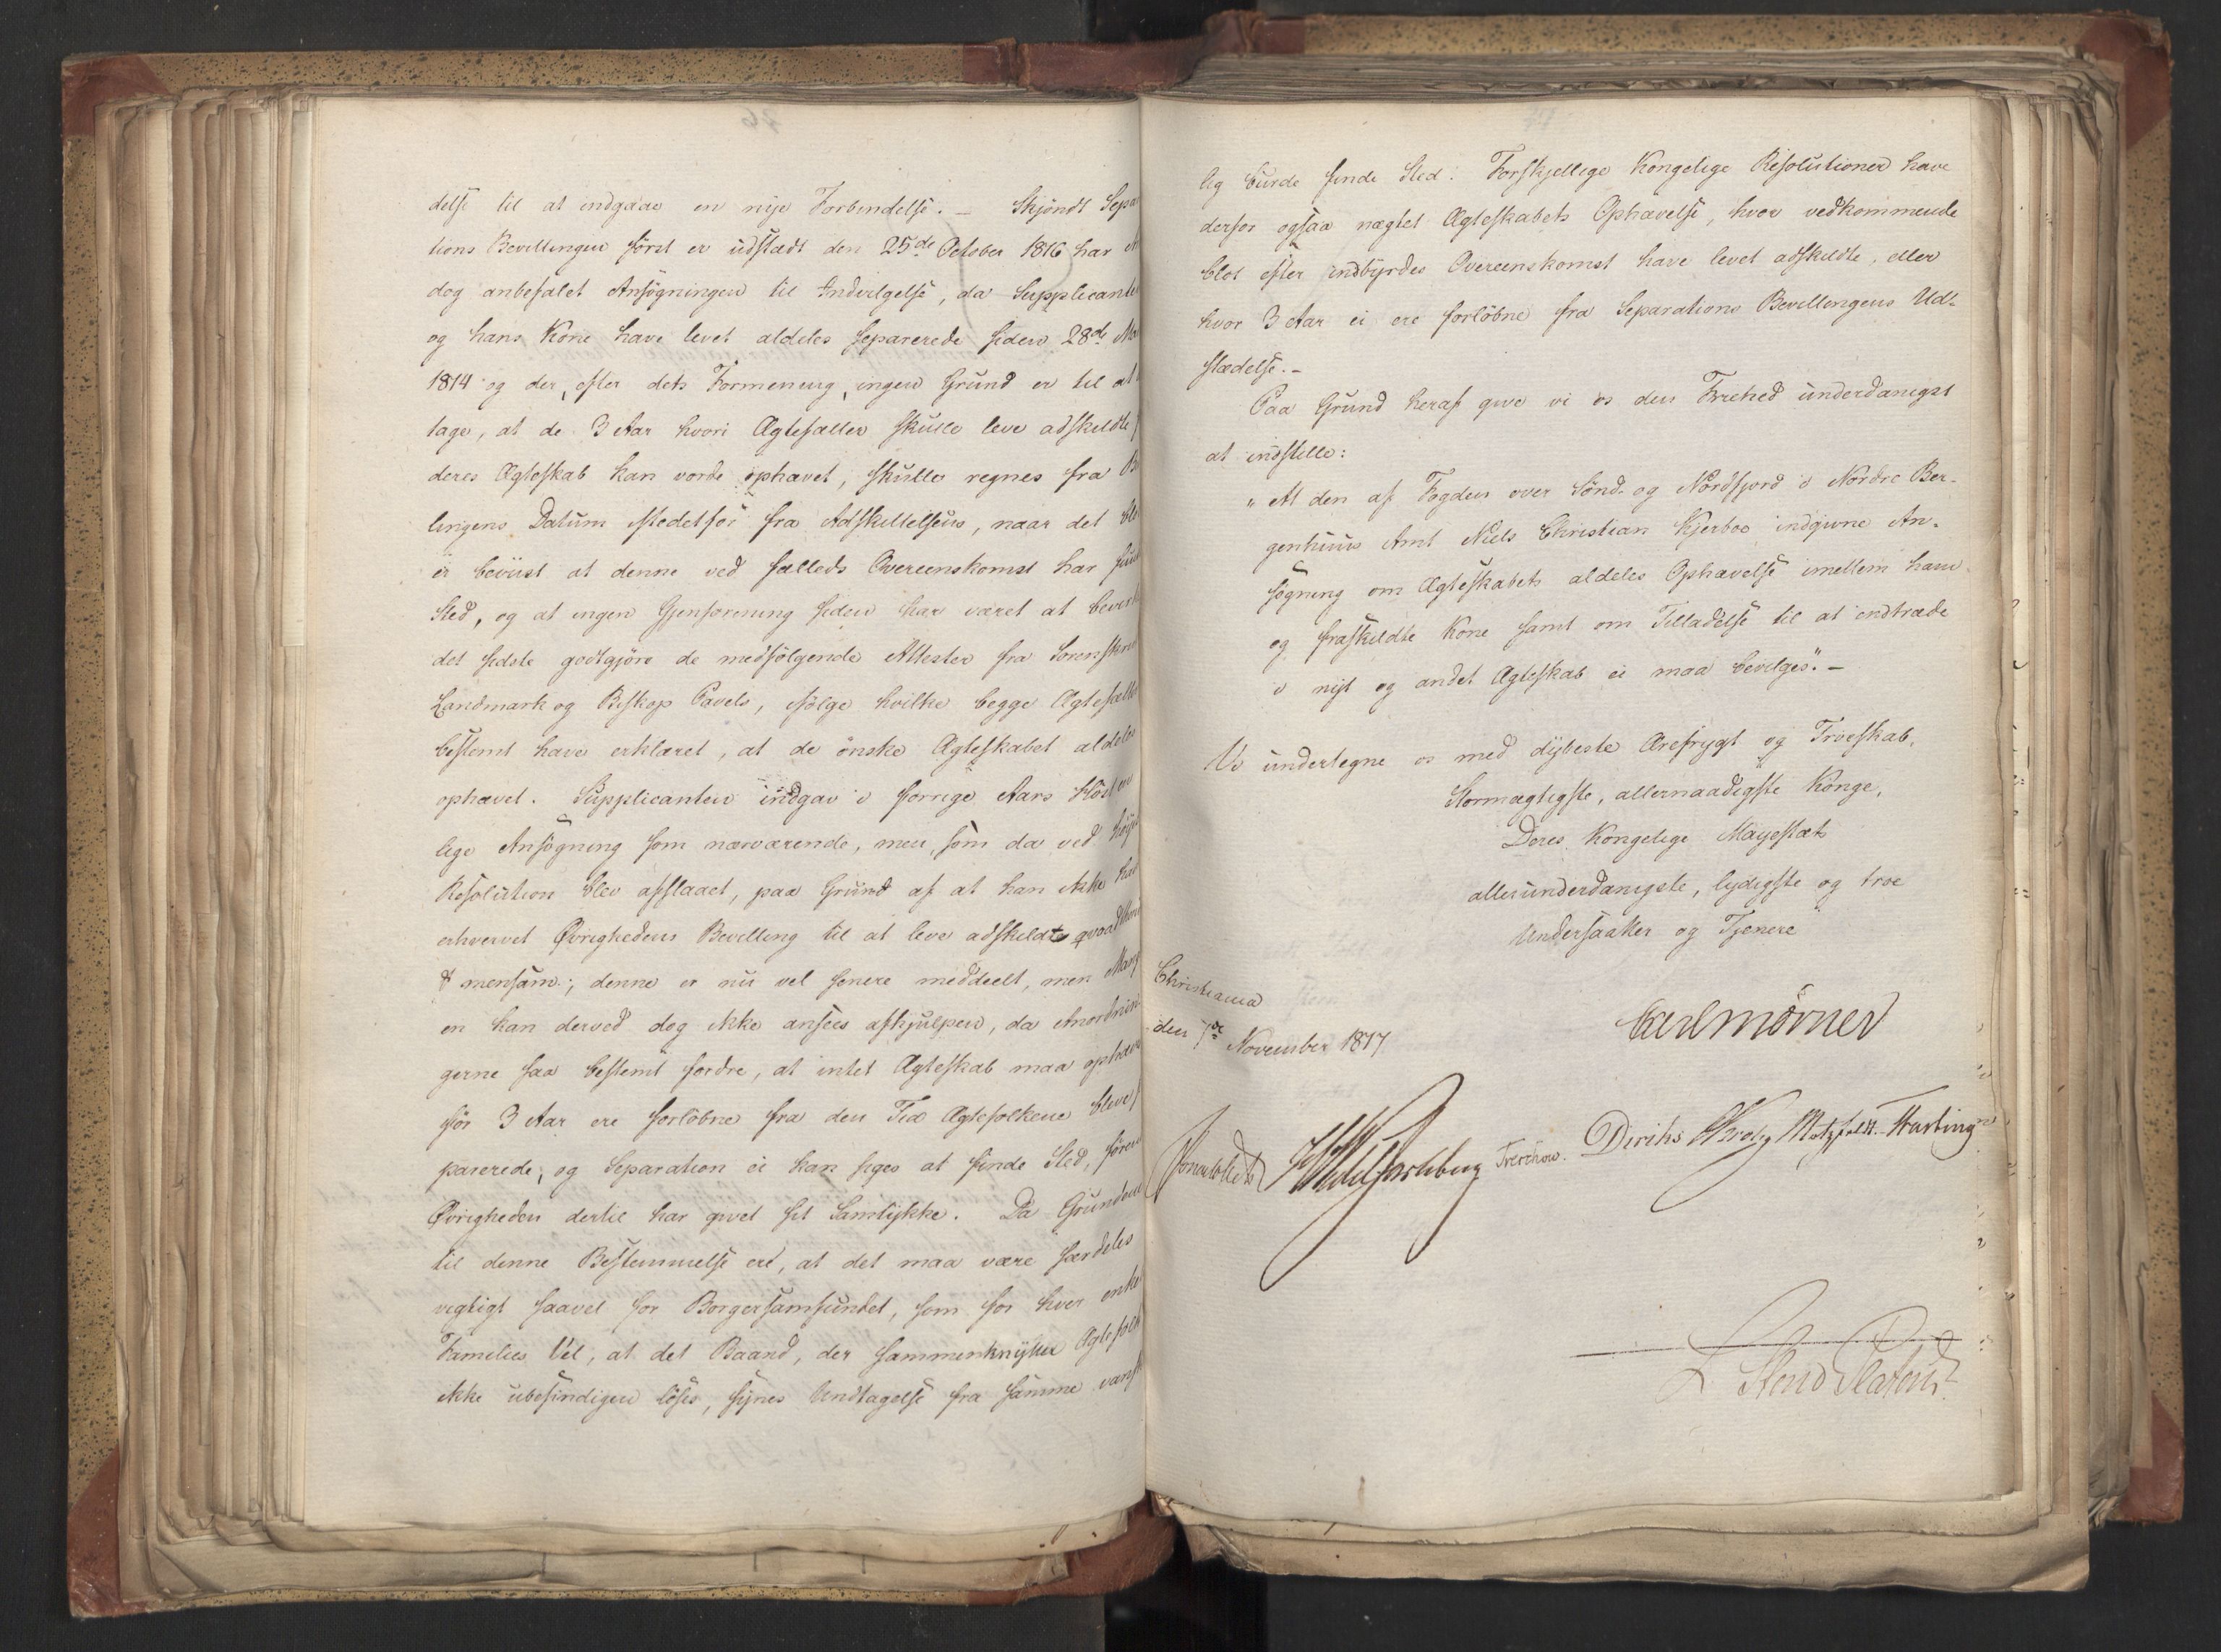 delse til at indgaae en nye Forbindelse. – Skjöndt Sepa
tions Bevillingen först er udstædt den 25de October 1816 har
dog anbefalet Ansögningen til Indvilgelse, da Supplicante
og hans Kone have levet aldeles separerede siden 28de
1814 og der, efter dets Formening, ingen Grund er til at
tage, at de 3 Aar hvori Ægtefæller skulle leve adskildte
deres Ægteskab kan vorde ophævet, skulle regnes fra
lingens Datum istedetfor fra Adskillelsens, naar det
er beviist at denne ved fælleds Overeenskomst har
Sted, og at ingen Gjenforening siden har været at
det sidste godtgjöre de medfölgende Attester fra Sorenskri
Landmark og Biskop Pavels, ifölge hvilke begge Ægtefæll
bestemt have erklæret, at de önske Ægteskabet aldeles
ophævet. Supplicanten indgav i forrige Aars Höst en
lige Ansögning som nærværende, men, som da ved höje
Resolution blev afslaaet, paa Grund af at han ikke
erhvervet Øvrighedens Bevilling til at leve adskildte qvoad thor
& mensam; denne er nu vel senere meddeelt, men Mang
en kan derved dog ikke ansees afhjulpen, da Anordnin
gerne saa bestemt fordre, at intet Ægteskab maa ophæv
för 3 Aar ere forlöbne fra den Tid Ægtefolkene bleve
parerede, og Separation ei kan siges at finde Sted, fören
Øvrigheden dertil har givet sit Samtykke. Da Grundene
til denne Bestemmelse ere, at det maa være særdeles
vigtigt saavel for Borgersamfundet, som for hver enke
Families Vel, at det Baand, der sammenknytter Ægtefolk
ikke ubesindigen löses, synes Undtagelse fra samme vans
lig burde finde Sted. Forskjellige Kongelige Resolutioner have
derfor ogsaa nægtet Ægteskabets Ophævelse, hvor vedkommende
blot efter indbyrdes Overeenskomst have levet adskildte, eller
hvor 3 Aar ei ere forlöbne fra Separations Bevillingens Ud-
stædelse. –
Paa Grund heraf give vi os den Friehed underdanigst
at indstille:
"At den af Fogden over Sönd- og Nordfjord i Nordre Ber-
genhuus Amt Niels Christian Kjerboe indgivne An-
sögning om Ægteskabets aldeles Ophævelse imellem ham
og fraskildte Kone samt om Tilladelse til at indtræde
i nyt og andet Ægteskab ei maa bevilges". –
Vi undertegne os med dybeste Ærefrygt og Troeskab,
Stormægtigste, allernaadigste Konge,
Deres Kongelige Majestæts
allerunderdanigste, lydigste og troe
Undersaatter og Tjenere
Christiania
den 7de November 1817
Carl Mörner
Sommerhielm HWedelJarlsberg Treschow. Diriks Krog Motzfeldt. Hasting